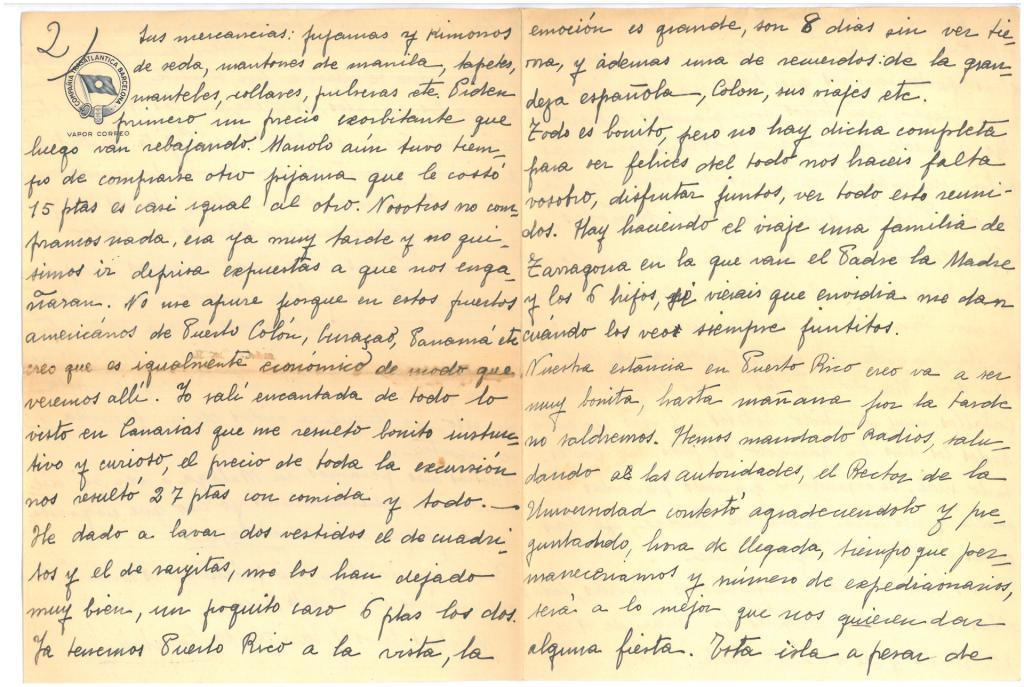 2/
COMPAÑIA TRASATLANTICA BARCELONA
VAPOR CORREO
sus mercancias: pijamas y kimonos
de seda, mantones de manila, tapetes,
manteles, collares, pulseras etc. Piden
primero un precio exorbitante que
luego van rebajando. Manolo aún tuvo tiem-
po de comprarse otro pijama que le costó
15 ptas es casi igual al otro. Nosotros no com-
pramos nada, era ya muy tarde y no qui-
simos ir deprisa expuestas a que nos enga-
ñaran. No me apure porque en estos puertos
americános de Puerto Colón, Curaçao, Panamá etc
creo que es igualmente económico de modo que
veremos allí. Yo salí encantada de todo lo
visto en Canarias que me resultó bonito instruc-
tivo y curioso, el precio de toda la excursión
nos resultó 27 ptas con comida y todo.—
He dado a lavar dos vestidos el de cuadri-
tos y el de rayitas, me los han dejado
muy bien, un poquito caro 6 ptas los dos.
Ya tenemos Puerto Rico a la vista, la
emoción es grande, son 8 dias sin ver tie-
rra, y ádemas una de recuerdos: de la gran-
deza española, Colon, sus viajes etc.
Todo es bonito, pero no hay dicha completa
para ser felices del todo nos haceis falta
vosotro, disfrutar juntos, ver todo esto reuni-
dos. Hay haciendo el viaje una familia de
Zarragona en la que van el Padre la Madre
y los 6 hijos, si vierais que envidia me dan
cuándo los veo siempre juntitos.
Nuestra estancia en Puerto Rico creo va a ser
muy bonita, hasta mañana por la tarde
no saldremos. Hemos mandado Radios, salu-
dando a las autoridades, el Rector de la
Universidad contestó agradeciendolo y pre-
guntadndo, hora de llegada, tiempo que per-
maneceriamos y número de expedicionarios,
será a lo mejor que nos quieren dar
alguna fiesta. Esta isla a pesar de